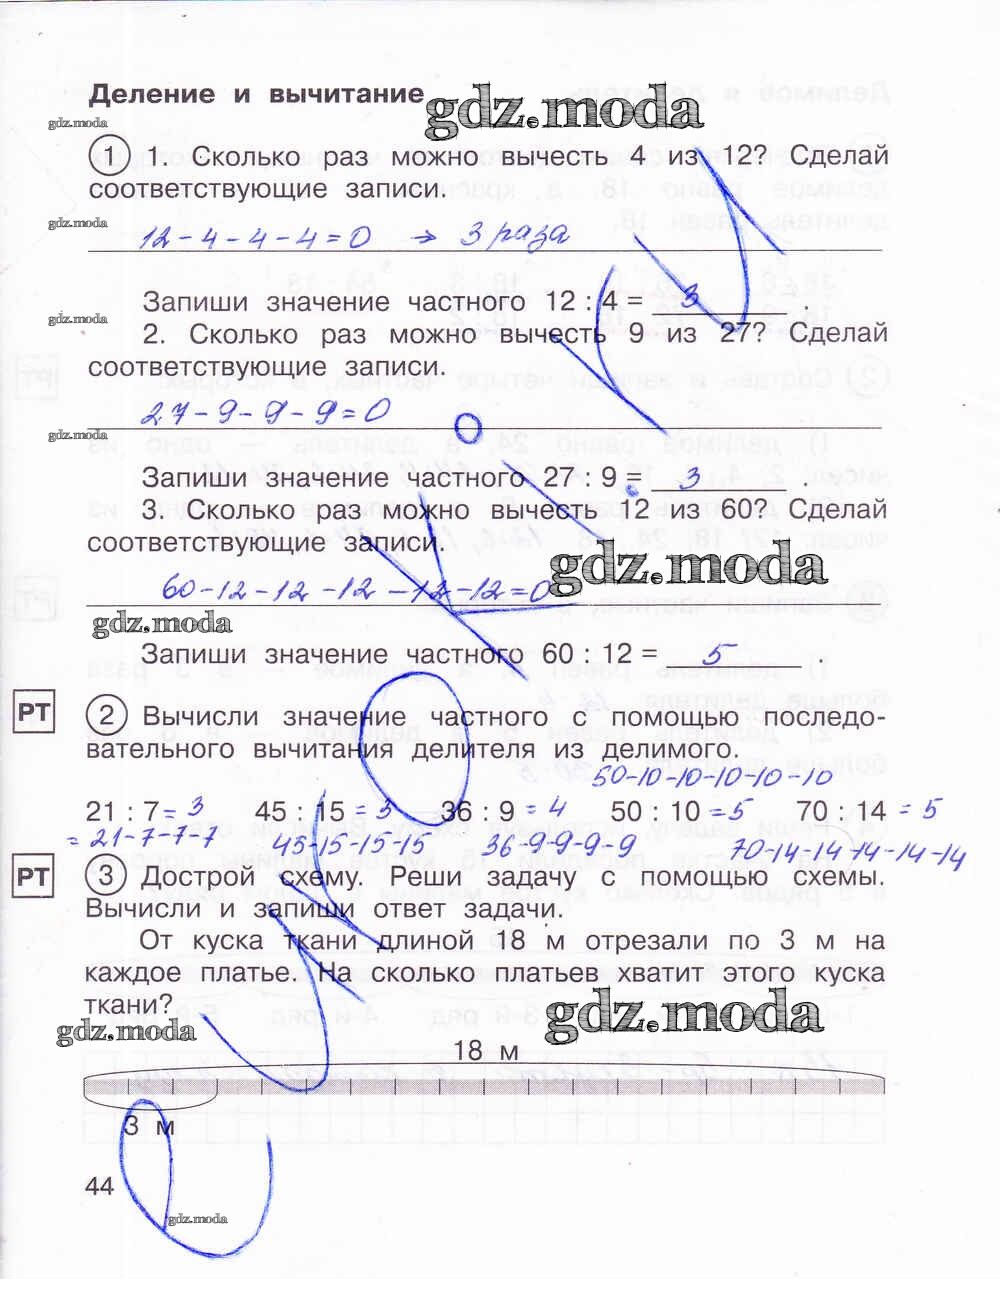 Деление и вычитание
gdz.moda
gdz.moda
1 1. Сколько раз можно вычесть 4 из 12? Сделай
соответствующие записи.
gdz.moda
12-4-4-4=0 → 3 раза
Запиши значение частного 12 : 4 = 3 .
gdz.moda
2. Сколько раз можно вычесть 9 из 27? Сделай
соответствующие записи.
27-9-9-9=0
gdz.moda
Запиши значение частного 27 : 9 = 3 .
3. Сколько раз можно вычесть 12 из 60? Сделай
соответствующие записи.
gdz.moda
60-12-12-12-12-12=0
gdz.moda
Запиши значение частного 60 : 12 = 5 .
РТ 2 Вычисли значение частного с помощью последо-
вательного вычитания делителя из делимого.
50-10-10-10-10-10
21 : 7 = 3 45 : 15 = 3 36 : 9 = 4 50 : 10 = 5 70 : 14 = 5
= 21-7-7-7 45-15-15-15 36-9-9-9-9 70-14-14-14-14-14
РТ 3 Дострой схему. Реши задачу с помощью схемы.
Вычисли и запиши ответ задачи.
От куска ткани длиной 18 м отрезали по 3 м на
каждое платье. На сколько платьев хватит этого куска
ткани?
gdz.moda
gdz.moda
18 м
3 м
44
gdz.moda